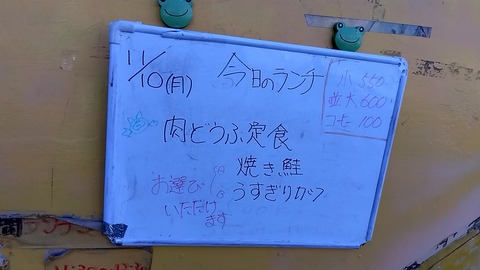 11/10(月) 今日のランチ
小 550
並大 600
コーヒー 100
肉どうふ定食
焼き鮭
うすぎりカツ
お選び
いただけ
ます